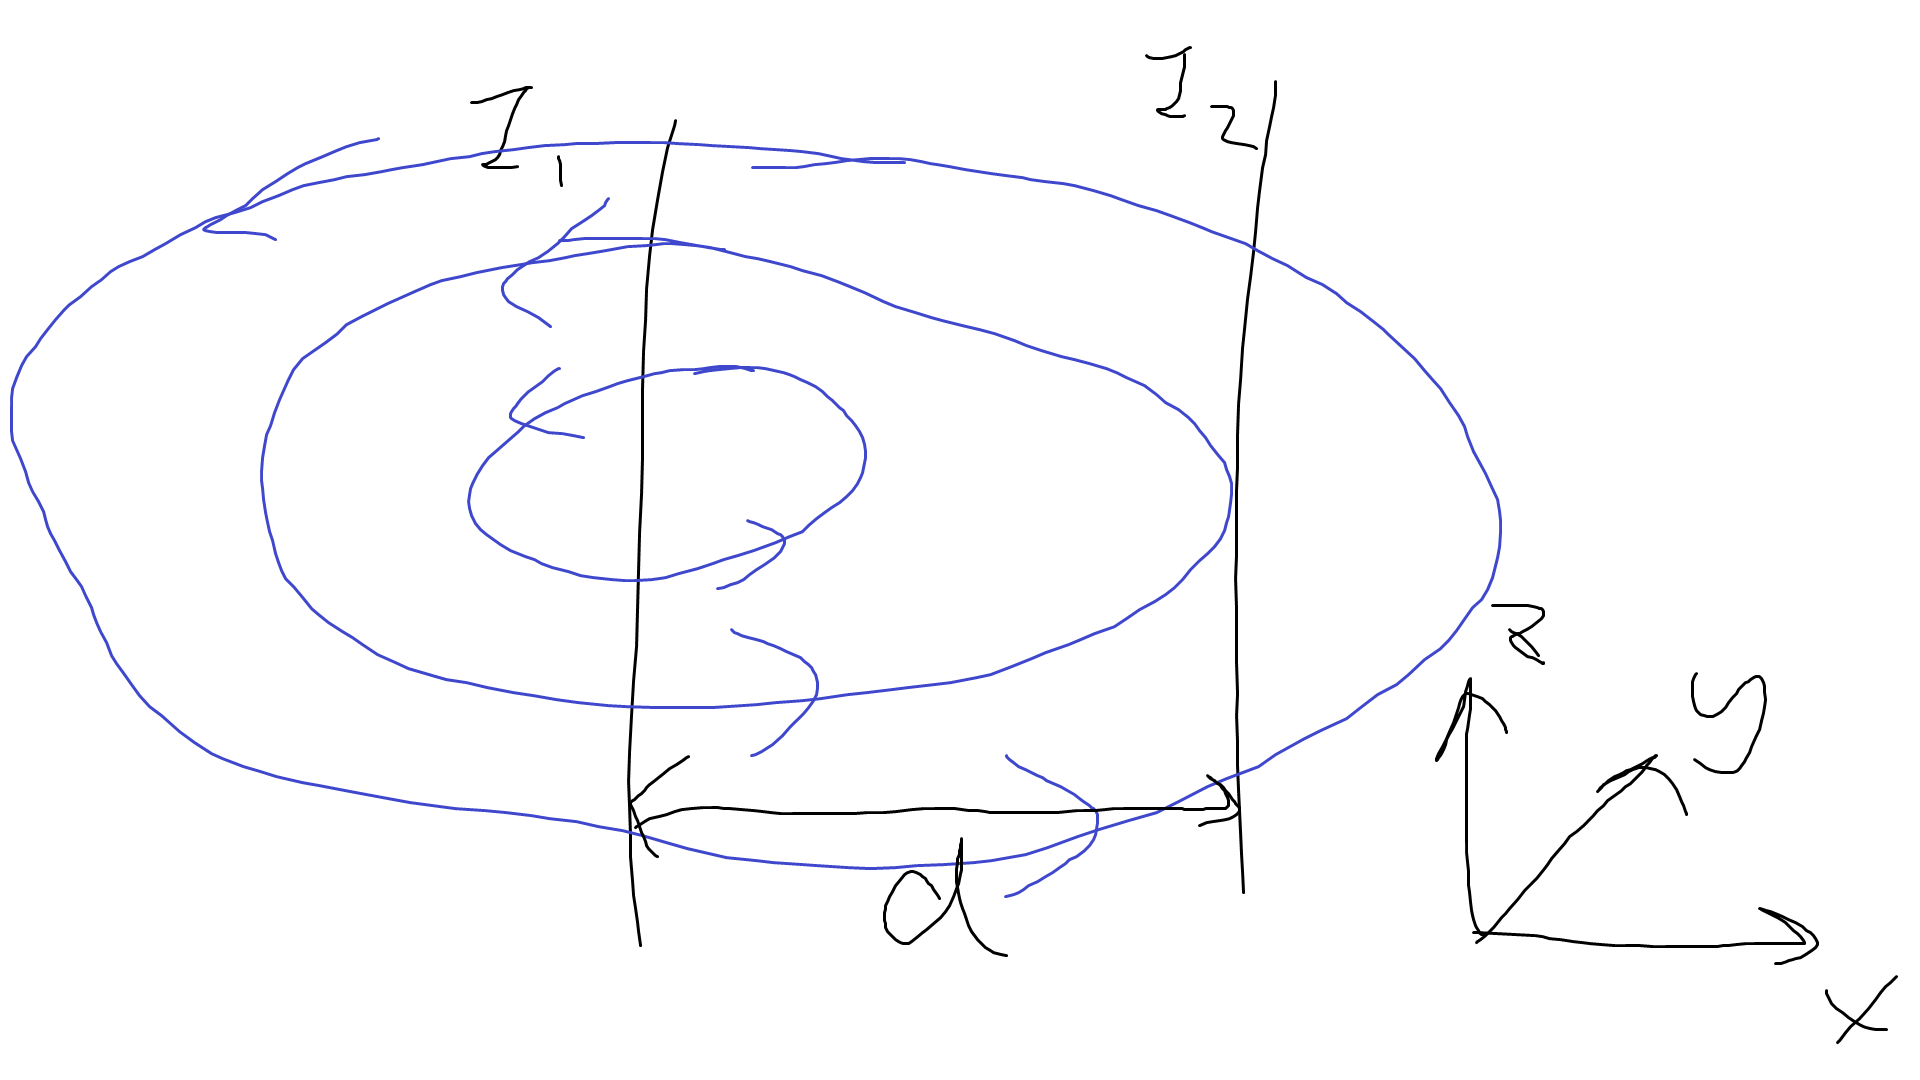 I₁
I₂
d
z
y
x